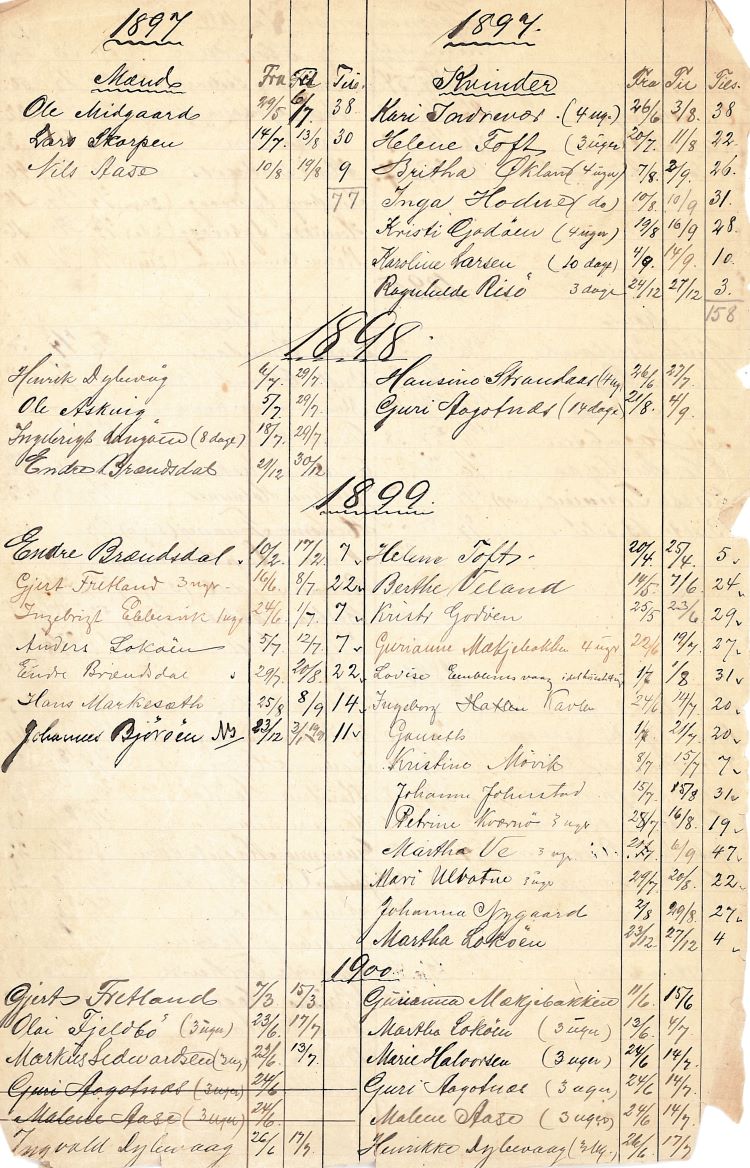 1897 1897.
Mænd Fra Til Ties. Kvinder Fra Til Ties.
Ole Midgaard 29/5 6/7 38 Kari (4 ug.) 26/6 3/8. 38
Lars Skorpen 14/7. 13/8 30 Helene Toft (3 uger) 20/7. 11/8 22
Nils Aase 10/8 19/8 9 Britha Økland (4 uger) 7/8. 2/9. 26
77 Inga Hodne (do) 10/8 10/9 31.
Kristi Godöen (4 uger) 19/8 16/9 28
Karoline Larsen (10 dage) 4/9. 14/9 10.
Ragnhilde Risö 3 dage 24/12 27/12 3.
158
1898
Henrik Dybevåg 6/7. 29/7. Hansine Strandaas (4 ug. 26/6 27/7.
Ole Askvig 5/7 29/7. Guri Aagotnæs (14 dage) 21/8. 4/9.
Ingebrigt Langöen (8 dage) 18/7 29/7.
Endre Brændsdal 29/12 30/12
1899
Endre Brændsdal 10/2. 17/2 7 Helene Toft 20/4. 25/4. 5
Gjert Fretland 3 ugr. 16/6 8/7 22 Berthe Veland 19/5 7/6 24
Ingebrigt Ebbesvik 1 ugr 24/6 1/7 7 Kristi Godöen 25/5 23/6 29
Anders Loköen 5/7 12/7. 7 Gurianne Mækjebakken 4 ugr 22/6 19/7. 27
Endre Brændsdal 29/7. 20/8 22 Lovise 1/7 1/8 31
Hans Markesæth 25/8 8/9 14 Ingeborg Hatlen Kavlen 24/6 14/7 20
Johannes Björöen 23/12 3/1 11 Gaureths 1/7 21/7 20
Kristine Mövik 8/7 15/7 7
Johanne Johnstad 15/7. 15/8 31
Petrine Kværnö 3 ugr 28/7. 16/8. 19
Martha Ve 3 ugr. 6/9 47
Mari Ulvatne 3 ugr 29/7. 20/8. 22
Johanna Nygaard 2/8 29/8 27
Martha Loköen 23/12. 27/12 4
1900
Gjert Fretland 7/3 15/3. Gurianna Mækjebakken 11/6. 15/6
Olai Fjeldbö (3 uger) 23/6. 17/7 Martha Loköen (3 uger) 13/6. 4/7
Markus Sedvardsen (3 ug) 23/6 13/7. Marie Halvorsen (3 uger) 24/6 14/7.
Guri Aagotnæs (3 uger) 24/6 Guri Aagotnæs (3 uger) 24/6 14/7.
Malene Aase (3 uger) 24/6. Malene Aase (3 uger) 24/6 14/7.
Ingvald Dybevaag 26/6 17/7 Henrikke Dybevaag (3 ug. 26/6 17/7